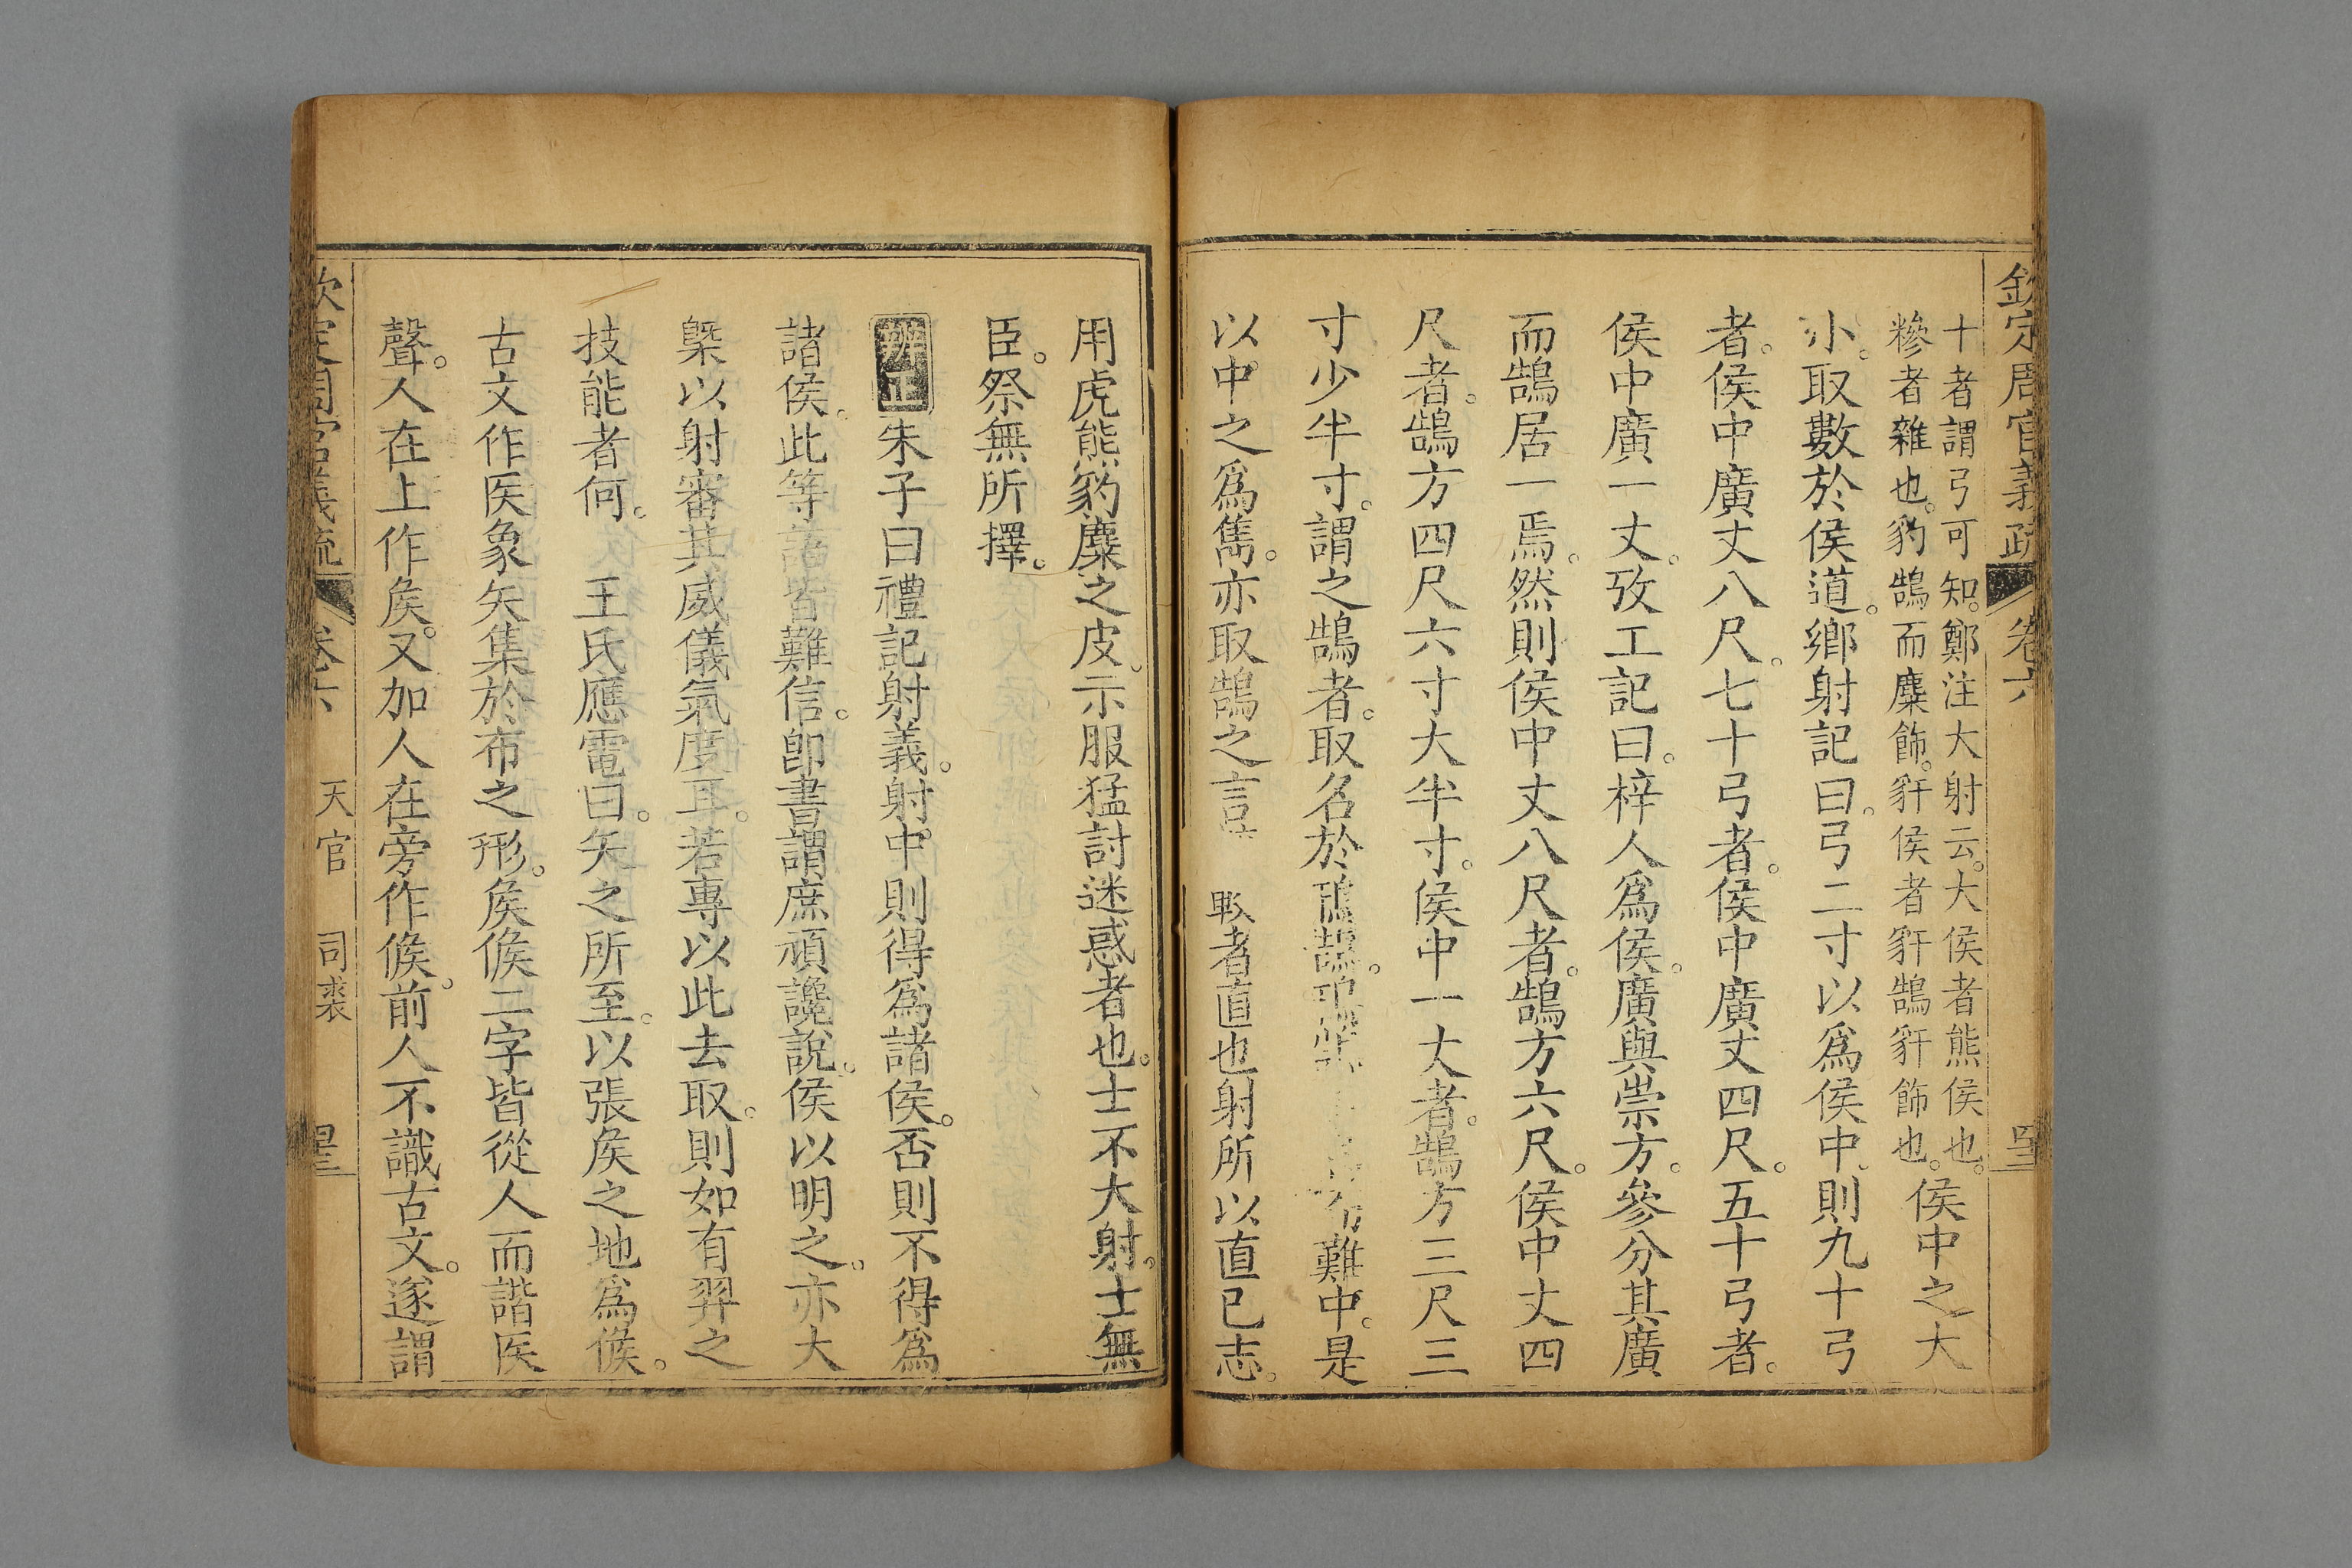 欽定周官義疏 卷六
十者謂弓可知。鄭注大射云。大侯者熊侯也。
糝者雜也。豹鵠而麋飾。豻侯者豻鵠豻飾也。
侯中之大
小。取數於侯道。鄉射記曰。弓二寸以爲侯中。則九十弓
者。侯中廣丈八尺。七十弓者。侯中廣丈四尺。五十弓者。
侯中廣一丈。攷工記曰。梓人爲侯。廣與崇方。參分其廣
而鵠居一焉。然則侯中丈八尺者。鵠方六尺。侯中丈四
尺者。鵠方四尺六寸大半寸。侯中一丈者。鵠方三尺三
寸少半寸。謂之鵠者。取名於 難中。是
以中之爲雋。亦取鵠之言 者直也射所以直已志。
用虎熊豹麋之皮。示服猛討迷惑者也。士不大射。士無
臣。祭無所擇。
辨正 朱子曰禮記射義。射中則得爲諸侯。否則不得爲
諸侯。此等語皆難信。卽書謂庶頑讒說。侯以明之。亦大
槩以射審其威儀氣度耳。若專以此去取。則如有羿之
技能者何。 王氏應電曰。矢之所至。以張矦之地爲候。
古文作医象矢集於布之形。矦候二字皆從人而諧医
聲。人在上作矦。又加人在旁作候。前人不識古文。遂謂
欽定周官義疏 卷六 天官 司裘